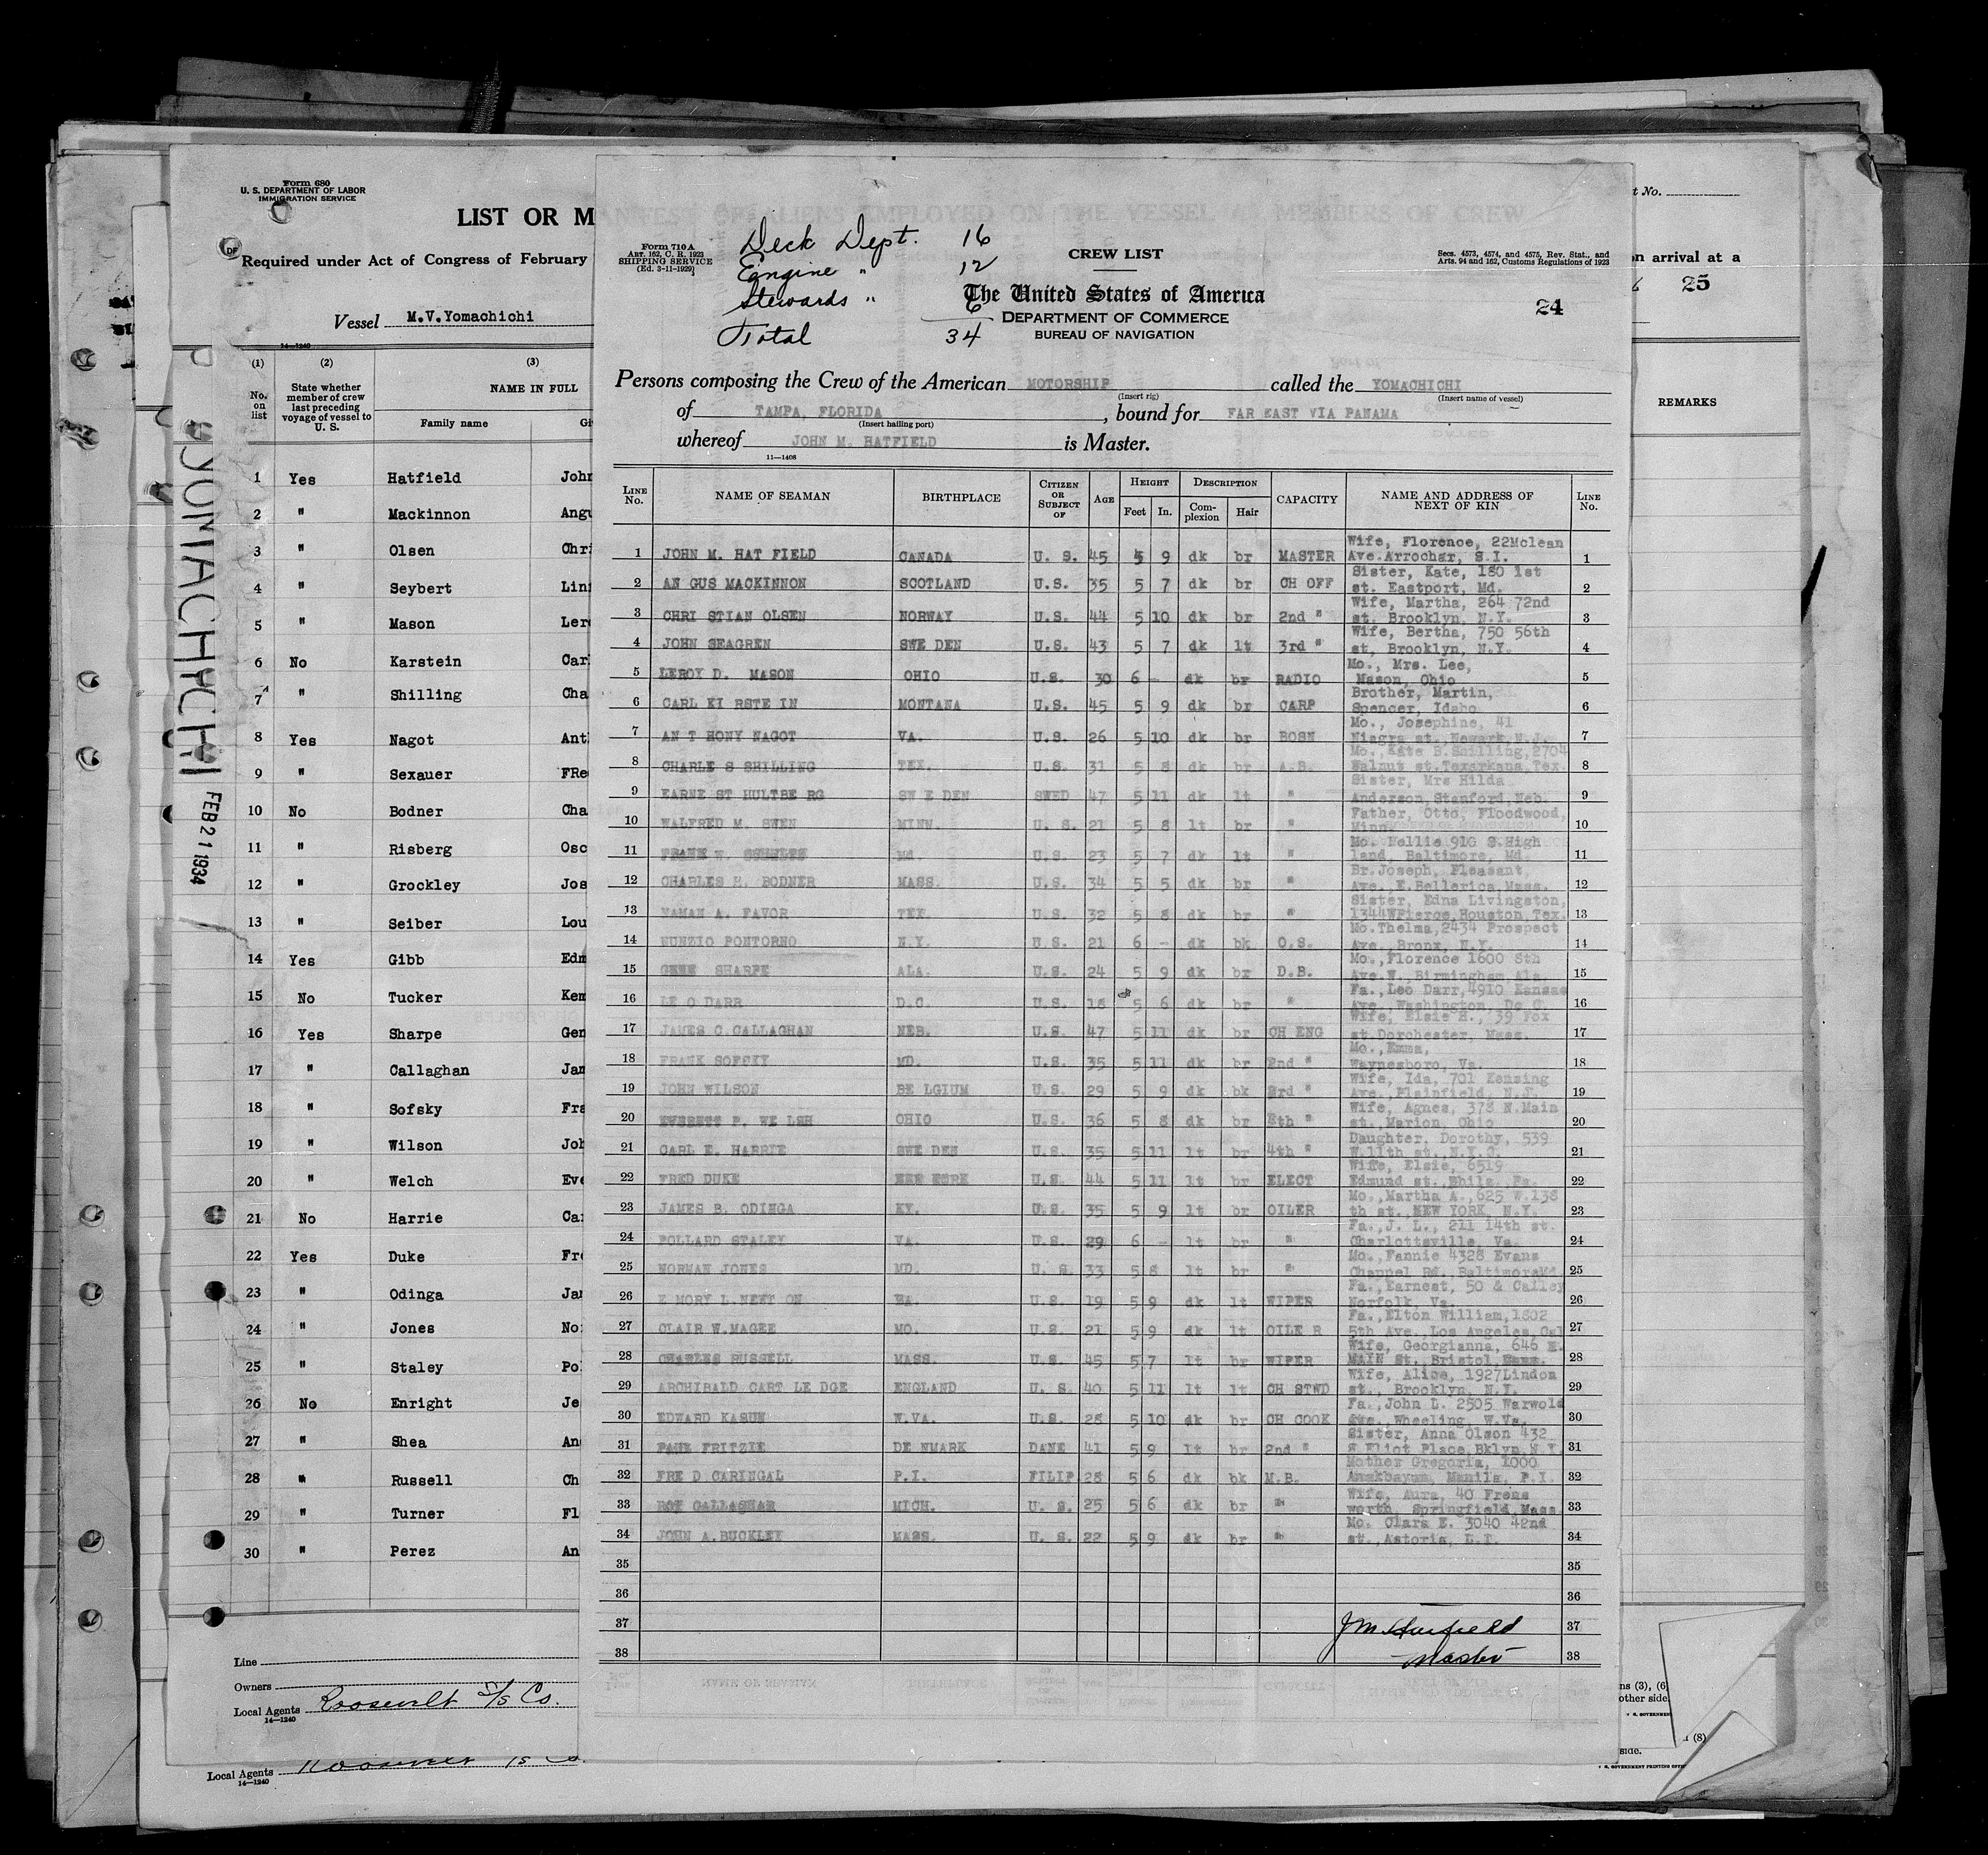 Form 680
U. S. DEPARTMENT OF LABOR
IMMIGRATION SERVICE
LIST OR M
Required under Act of Congress of February
Vessel M.V.Yomachichi
14—1240
(1) (2) (3)
No. on list
State whether member of crew last preceding voyage of vessel to U. S.
NAME IN FULL
Family name
1 Yes Hatfield John
2 " Mackinnon Angu
3 " Olsen Chri
4 " Seybert Lin
5 " Mason Ler
6 No Karstein Car
7 " Shilling Cha
8 Yes Nagot Ant
9 " Sexauer FRe
10 No Bodner Cha
11 " Risberg Osc
12 " Grockley Jos
13 " Seiber Lou
14 Yes Gibb Edm
15 No Tucker Kem
16 Yes Sharpe Gen
17 " Callaghan Jam
18 " Sofsky Fra
19 " Wilson Joh
20 " Welch Eve
21 No Harrie Ca
22 Yes Duke Fr
23 " Odinga Ja
24 " Jones No
25 " Staley Po
26 No Enright Je
27 " Shea An
28 " Russell Ch
29 " Turner Fl
30 " Perez An
Line
Owners
Local Agents Roosevelt S/S Co.
14—1240
Local Agents
14—1240
YOMACHICHI FEB 21 1934
Form 710 A
ART. 162, C. R. 1923
SHIPPING SERVICE
(Ed. 3-11-1929)
Deck Dept. 16
Engine " 12
Stewards " 6
Total 34
CREW LIST
The United States of America
DEPARTMENT OF COMMERCE
BUREAU OF NAVIGATION
Secs. 4573, 4574, and 4575, Rev. Stat., and
Arts. 94 and 162, Customs Regulations of 1923
24
Persons composing the Crew of the American MOTORSHIP called the YOMACHICHI
(Insert rig) (Insert name of vessel)
of TAMPA, FLORIDA, bound for FAR EAST VIA PANAMA
(Insert hailing port)
whereof JOHN M. HATFIELD is Master.
11—1408
LINE No. NAME OF SEAMAN BIRTHPLACE CITIZEN OR SUBJECT OF AGE HEIGHT Feet In. DESCRIPTION Complexion Hair CAPACITY NAME AND ADDRESS OF NEXT OF KIN LINE No.
1 JOHN M. HAT FIELD CANADA U. S. 45 5 9 dk br MASTER Wife, Florence, 22Mclean Ave.Arrochar, S.I. 1
2 AN GUS MACKINNON SCOTLAND U.S. 35 5 7 dk br CH OFF Sister, Kate, 180 1st st. Eastport, Md. 2
3 CHRI STIAN OLSEN NORWAY U.S. 44 5 10 dk br 2nd " Wife, Martha, 264 72nd st. Brooklyn, N.Y. 3
4 JOHN SEAGREN SWE DEN U.S. 43 5 7 dk lt 3rd " Wife, Bertha, 750 56th st, Brooklyn, N.Y. 4
5 LEROY D. MASON OHIO U.S. 30 6 - dk br RADIO Mo., Mrs. Lee, Mason, Ohio 5
6 CARL KI RSTE IN MONTANA U.S. 45 5 9 dk br CARP Brother, Martin, Spencer, Idaho 6
7 AN T HONY NAGOT VA. U.S. 26 5 10 dk br BOSN Mo., Josephine, 41 Niagra st. Newark, N.J. 7
8 CHARLE S SHILLING TEX. U.S. 31 5 8 dk br A.B. Mo., Kate B.Shilling,2704 Walnut st.Texarkana Tex. 8
9 EARNE ST HULTBE RG SW E DEN SWED 47 5 11 dk lt " Sister, Mrs Hilda Anderson,Stanford,Neb. 9
10 WALFRED M. SWEN MINN. U. S. 21 5 8 lt br " Father, Otto, Floodwood, Minn. 10
11 FRANK W. Md. U.S. 23 5 7 dk lt " Mo. Nellie 910 S.High land, Baltimore, Md. 11
12 CHARLES H. BODNER MASS. U.S. 34 5 5 dk br " Br.Joseph, Pleasant Ave.,E.Bellerica,Mass. 12
13 NAMAN A. FAVOR TEX. U.S. 32 5 8 dk br " Sister, Edna Livingston, 1344WPierce,Houston,Tex. 13
14 NUNZIO PONTORNO N.Y. U.S. 21 6 - dk bk O.S. Mo.Thelma,2434 Prospect Ave., Bronx, N.Y. 14
15 GENE SHARPE ALA. U.S. 24 5 9 dk br D.B. Mo.,Florence 1600 8th Ave.W. Birmingham Ala. 15
16 LE O DARR D.C. U.S. 18 5 6 dk br " Fa., Leo Darr,4910 Kansas Ave. Washington Do C. 16
17 JAMES C.CALLAGHAN NEB. U.S. 47 5 11 dk br CH ENG Wife, Elsie H., 39 Fox st.Dorchester, Mass. 17
18 FRANK SOFSKY MD. U.S. 35 5 11 dk br 2nd " Mo.,Emma, Waynesboro, Va. 18
19 JOHN WILSON BE LGIUM U.S. 29 5 9 dk bk 3rd " Wife, Ida, 701 Kensing Ave.,Plainfield, N.J. 19
20 EVERETT P. WE LSH OHIO U.S. 36 5 8 dk br " Wife, Agnes, 378 N.Main st., Marion, Ohio 20
21 CARL E. HARRIE SWE DEN U.S. 35 5 11 lt br 4th " Daughter, Dorothy, 539 W.11th st.,N.Y.C. 21
22 FRED DUKE NEW YORK U.S. 44 5 11 lt br ELECT Wife, Elsie, 6519 Edmund st.,Phila.,Pa. 22
23 JAMES B. ODINGA KY. U.S. 35 5 9 lt br OILER Mo.,Martha A.,625 W.138 th st.,NEW YORK, N.Y. 23
24 POLLARD STALEY VA. U.S. 29 6 - lt br " Fa.,J. L., 211 14th st. Charlottsville, Va. 24
25 NORMAN JONES MD. U. S. 33 5 8 lt br " Mo., Fannie 4328 Evans Chappel Rd. BaltimoraMd. 25
26 E MORY L.NEWT ON U.S. 19 5 9 dk lt WIPER Fa.,Earnest, 50 & Calley Norfolk Va. 26
27 CLAIR W.MAGEE MO. U.S. 21 5 9 dk lt OILE R Fa.,Elton William,1802 5th Ave.,Los Angeles,Cal 27
28 CHARLES RUSSELL MASS. U.S. 45 5 7 lt br WIPER Wife, Georgianna, 646 E. MAIN St. Bristol 28
29 ARCHIBALD CART LE DGE ENGLAND U. S. 40 5 11 lt lt CH STWD Wife, Alice, 1927Lindon st., Brooklyn, N.Y. 29
30 EDWARD KASUN W.VA. U.S. 28 5 10 dk br CH COOK Fa.,John L. 2505 Warwold Ave.,Wheeling, W.Va. 30
31 FRITZIE DE NMARK DANE 41 5 9 lt br 2nd " Sister, Anna Olson 432 S Eliot Place,Bklyn,N.Y. 31
32 FRE D CARINGAL P.I. FILIP. 28 5 6 dk bk M.B. Mother Gregoria, 1000 Manila, P.I. 32
33 ROY GALLAGHAR MICH. U. S. 25 5 6 dk br " Wife, Aura, 40 Frens worth, Springfield,Mass 33
34 JOHN A.BUCKLEY MASS. U. S. 22 5 9 dk br " Mo. Clara E. 3040 42nd st.,Astoria, L.I. 34
35 35
36 36
37 37
38 38
J M Hatfield
Master
t No.
n arrival at a
25
REMARKS
ns (3), (6)
other side.
(8)
side.